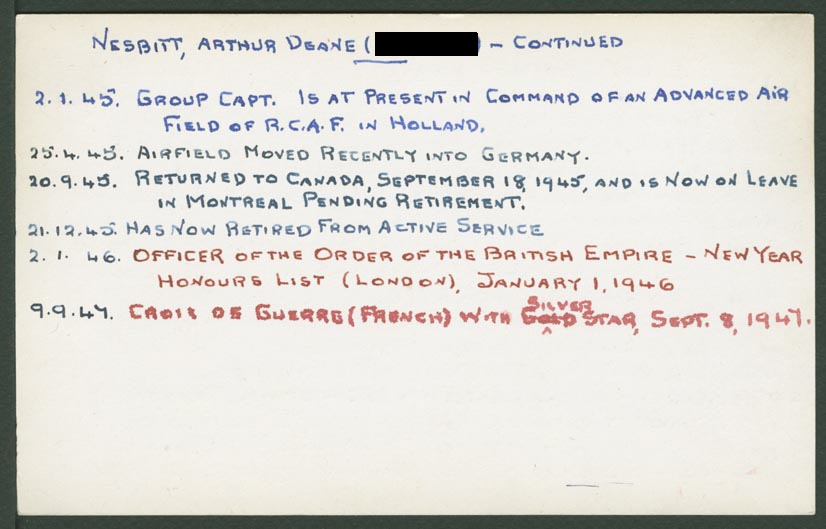 NESBITT, ARTHUR DEANE ( ) - CONTINUED
2.1.45. GROUP CAPT. IS AT PRESENT IN COMMAND OF AN ADVANCED AIR
FIELD OF R.C.A.F. IN HOLLAND.
25.4.45. AIRFIELD MOVED RECENTLY INTO GERMANY.
20.9.45. RETURNED TO CANADA, SEPTEMBER 18, 1945, AND IS NOW ON LEAVE
IN MONTREAL PENDING RETIREMENT.
21.12.45. HAS NOW RETIRED FROM ACTIVE SERVICE
2.1.46. OFFICER OF THE ORDER OF THE BRITISH EMPIRE - NEW YEAR
HONOURS LIST (LONDON), JANUARY 1, 1946
SILVER
9.9.47. CROIX DE GUERRE (FRENCH) WITH GOLD STAR, SEPT. 8, 1947.